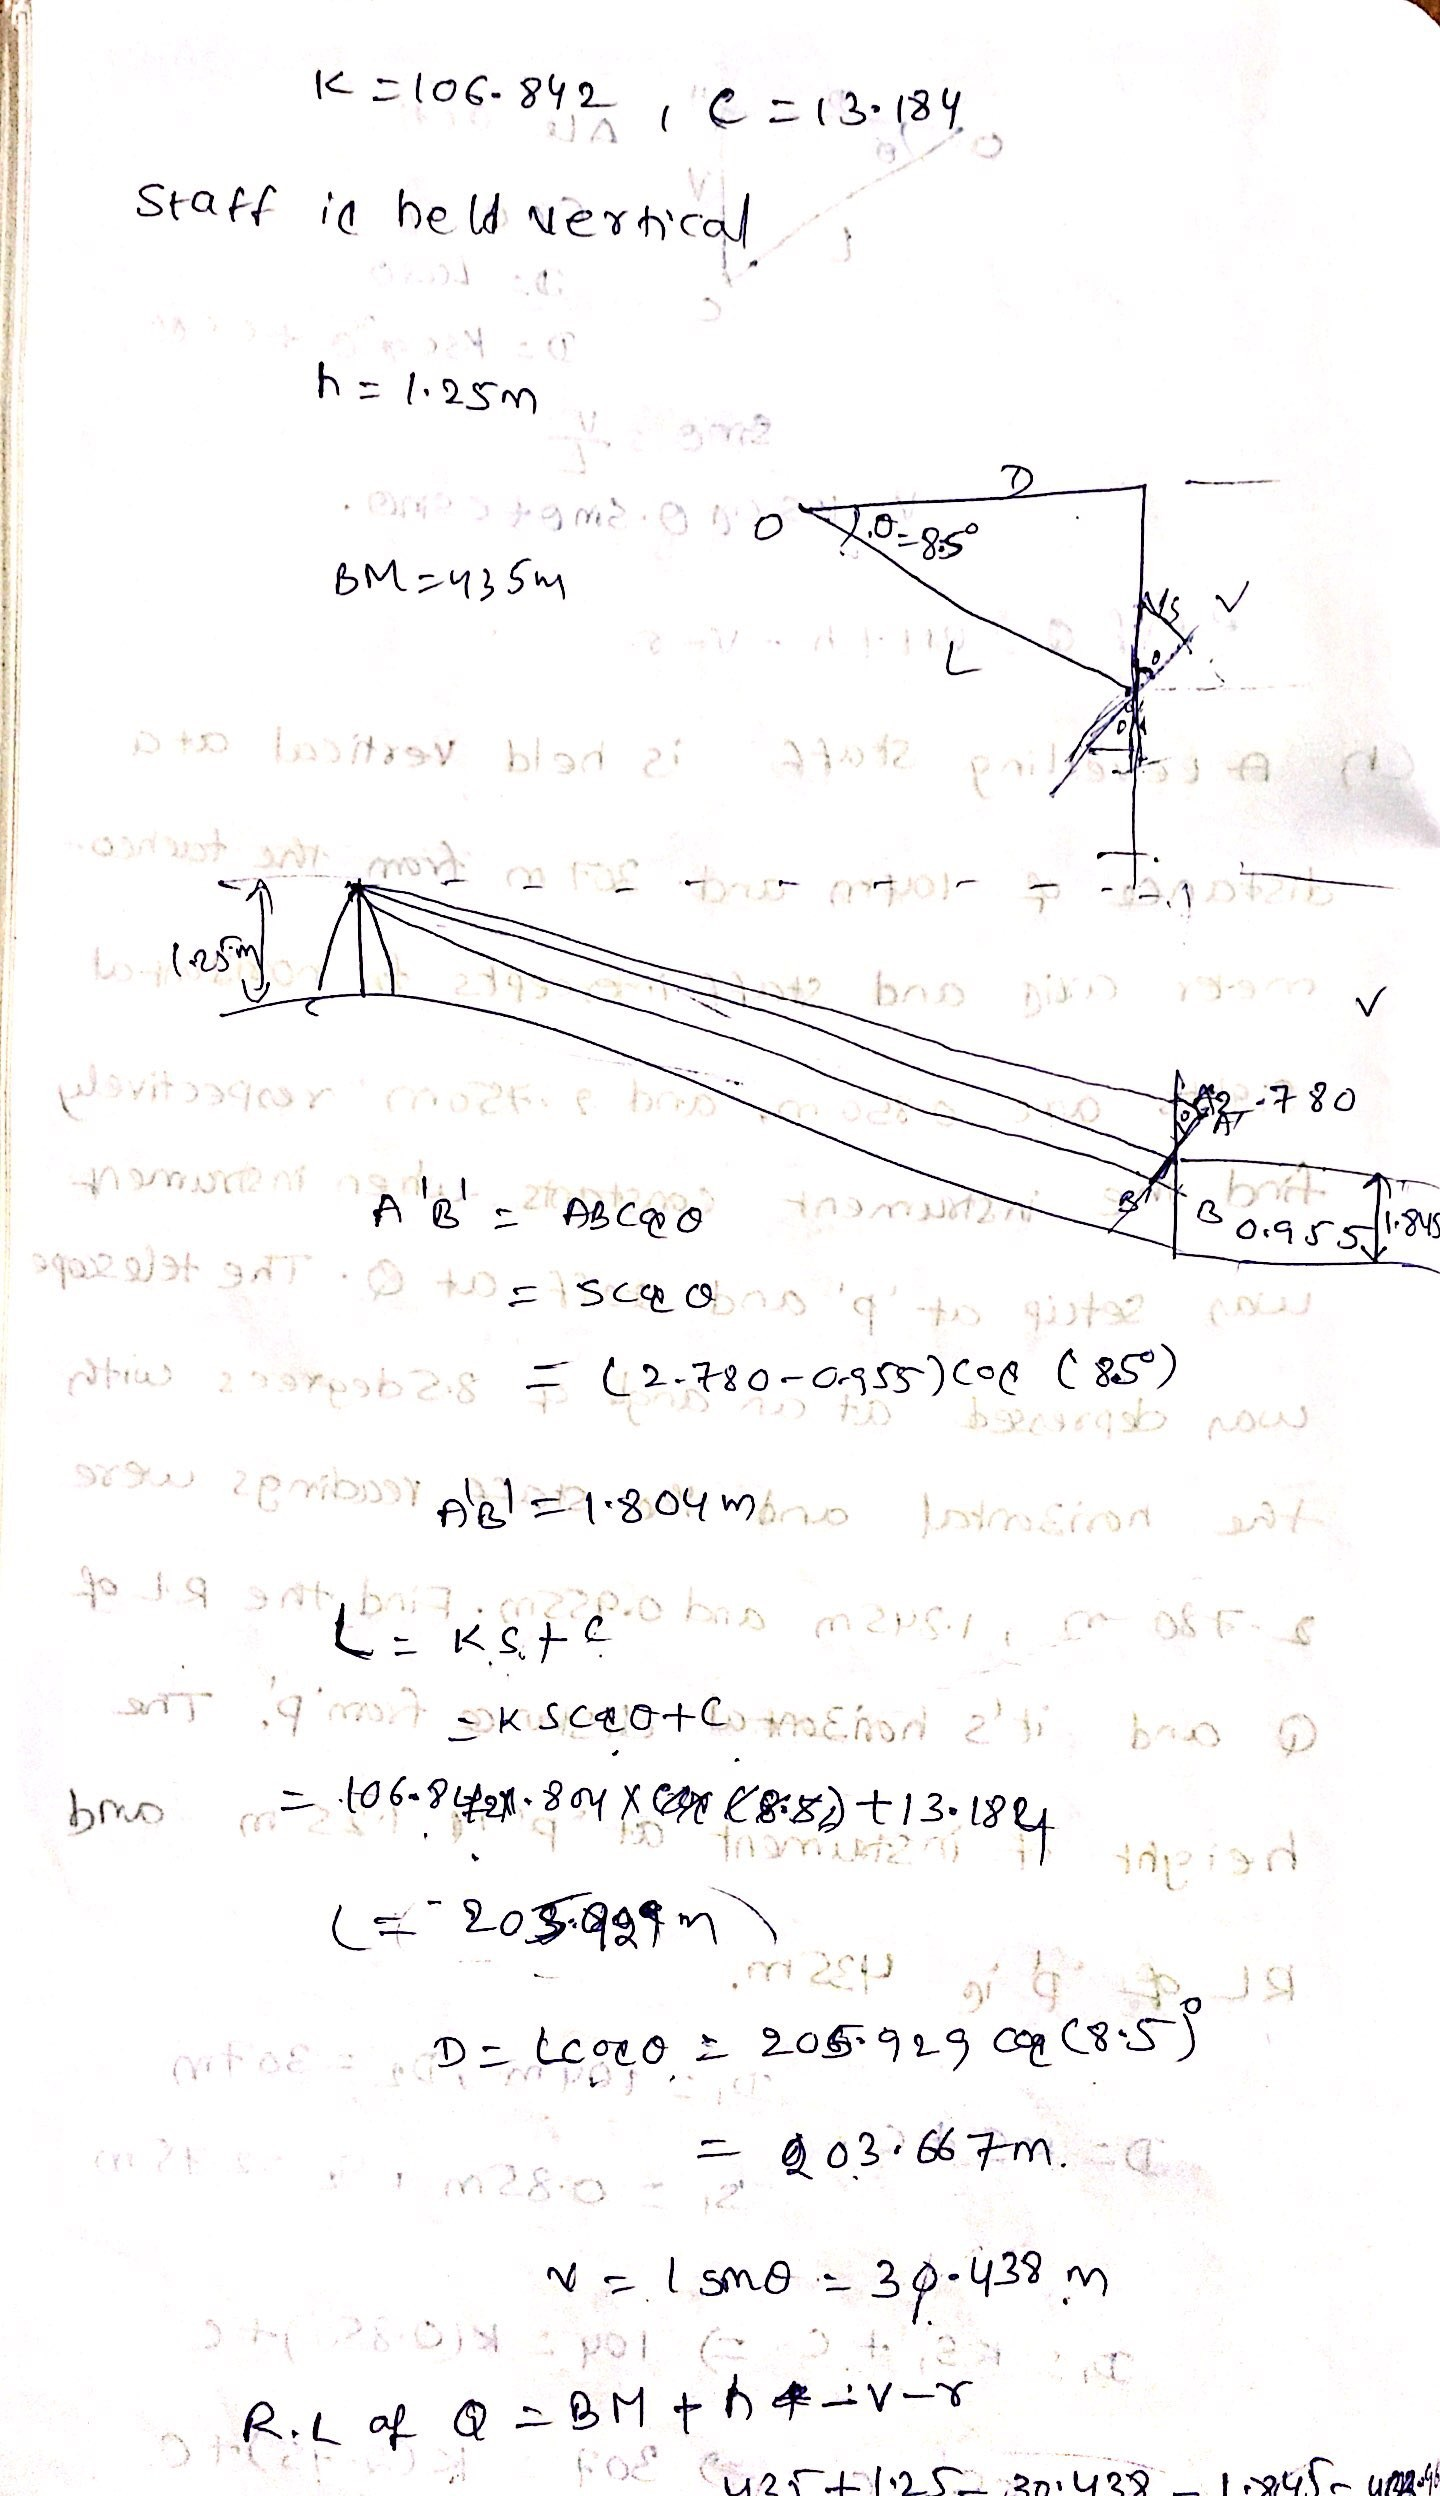 K = 106.842 , C = 13.184
Staff is held vertical
h = 1.25m
D
O θ = 8.5°
BM = 435m
S V
L
θ
θ
1.25m
V
2.780
A'
A'B' = AB cos θ
B' B 0.955 1.845
= S cos θ
= (2.780 - 0.955) cos (8.5°)
A'B' = 1.804 m
L = KS + C
= K S cos θ + C
= 106.842 x 1.804 + 13.184
L = 205.929 m
D = L cos θ = 205.929 cos (8.5)°
= 203.667 m.
V = l sin θ = 30.438 m
R.L of Q = BM + h - V - r
435 + 1.25 - 30.438 - 1.845 =